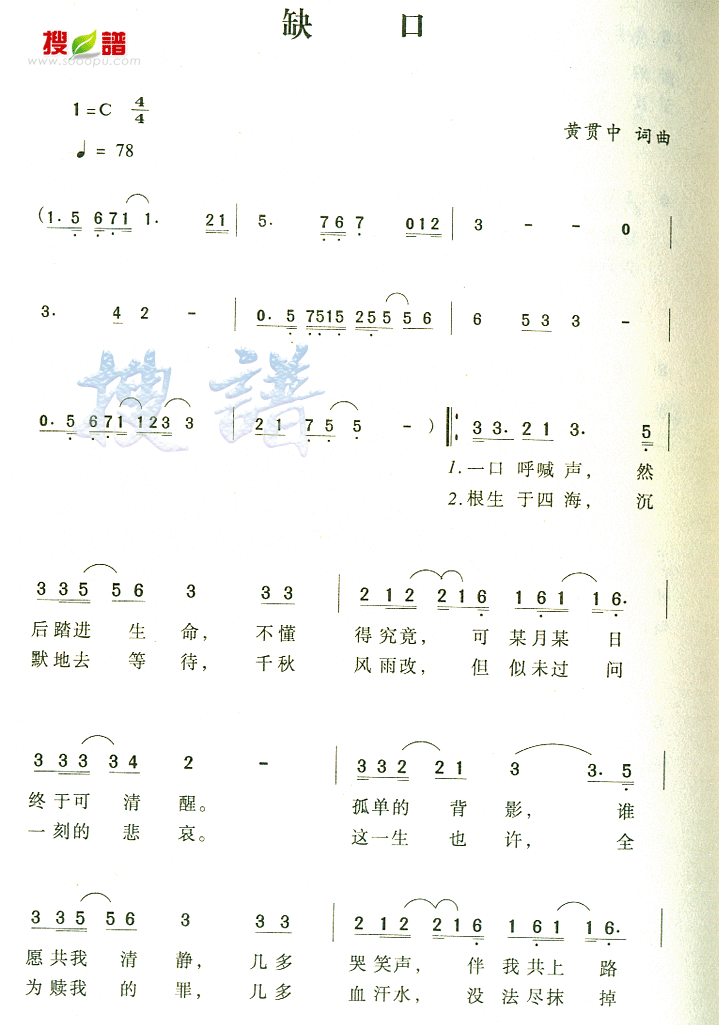 缺 口
搜 譜
www.sooopu.com
1=C 4/4
♩= 78
黄贯中 词曲
(1. 5 671 1. 21 | 5. 767 012 | 3 - - 0 |
3. 4 2 - | 0. 5 7515 255 56 | 6 533 - |
搜 譜
0. 5 671 123 3 | 21 755 - ) ‖: 33. 21 3. 5
1.一口 呼喊 声， 然
2.根生 于四 海， 沉
3 35 56 3 33 | 212 216 161 16. |
后踏进 生 命， 不懂 得究竟， 可 某月某 日
默地去 等 待， 千秋 风雨改， 但 似未过 问
333 34 2 - | 332 21 3 3. 5 |
终于可 清 醒。 孤单的 背 影， 谁
一刻的 悲 哀。 这一生 也 许， 全
335 56 3 33 | 212 216 161 16. |
愿共我 清 静， 几多 哭笑声， 伴 我共上 路
为赎我 的 罪， 几多 血汗水， 没 法尽抹 掉